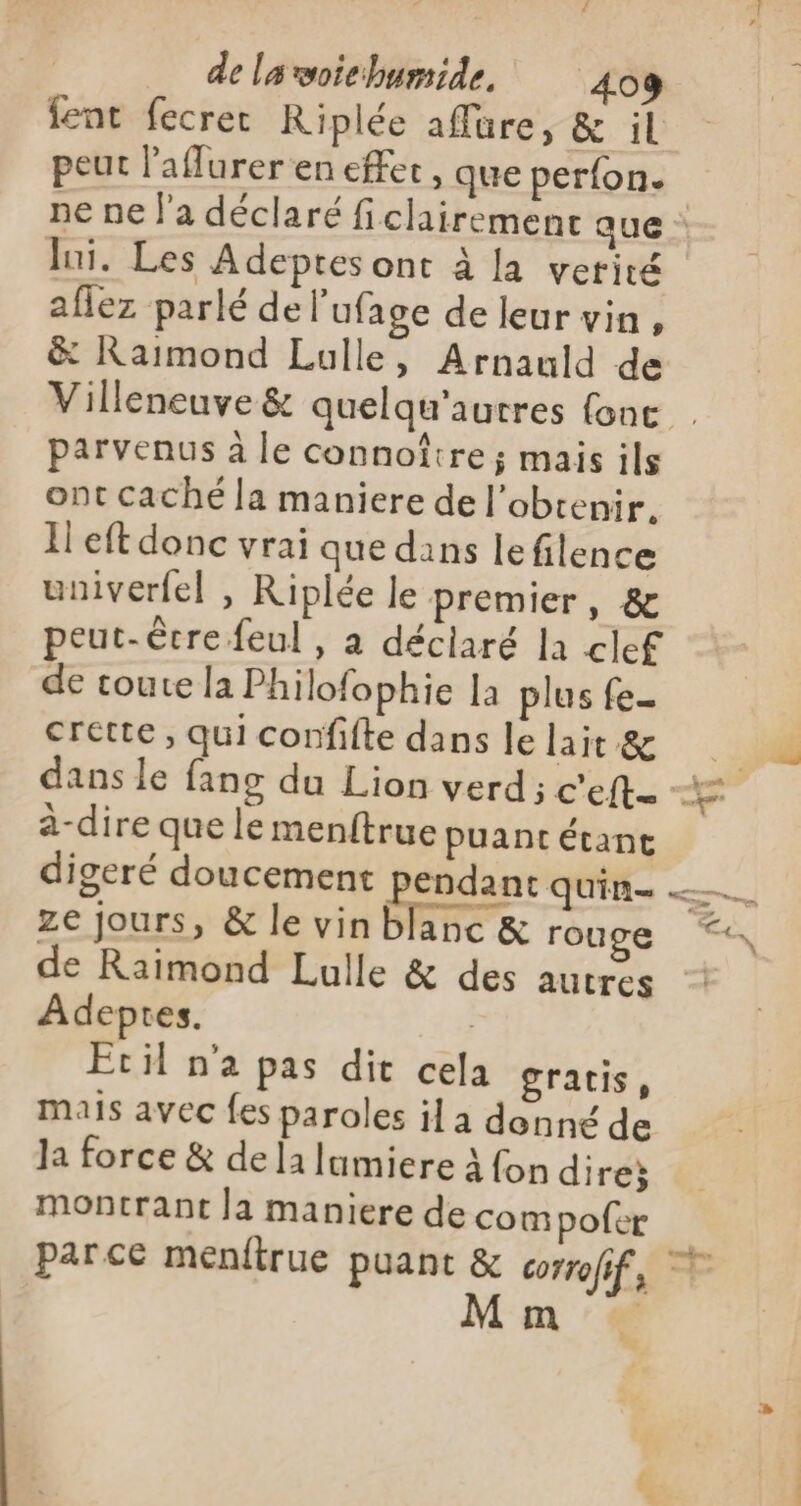 de la voie humide. 409
ſent ſecret Riplée aſſure, & il
peut l'aſſurer en effet, que perſon-
ne ne l'a déclaré ſi clairement que
lui. Les Adeptes ont à la verité
aſſez parlé de l'uſage de leur vin,
& Raimond Lulle, Arnauld de
Villeneuve & quelqu'autres ſont
parvenus à le connoître; mais ils
ont caché la maniere de l'obtenir.
Il eſt donc vrai que dans le ſilence
univerſel, Riplée le premier, &
peut-être ſeul, a déclaré la clef
de toute la Philoſophie la plus ſe-
crette, qui conſiſte dans le lait &
dans le ſang du Lion verd; c'eſt-
à-dire que le menſtrue puant étant
digeré doucement pendant quin-
ze jours, & le vin blanc & rouge
de Raimond Lulle & des autres
Adeptes.
Et il n'a pas dit cela gratis,
mais avec ſes paroles il a donné de
la force & de la lumiere à ſon dire;
montrant la maniere de compoſer
par ce menſtrue puant & corroſif,
M m